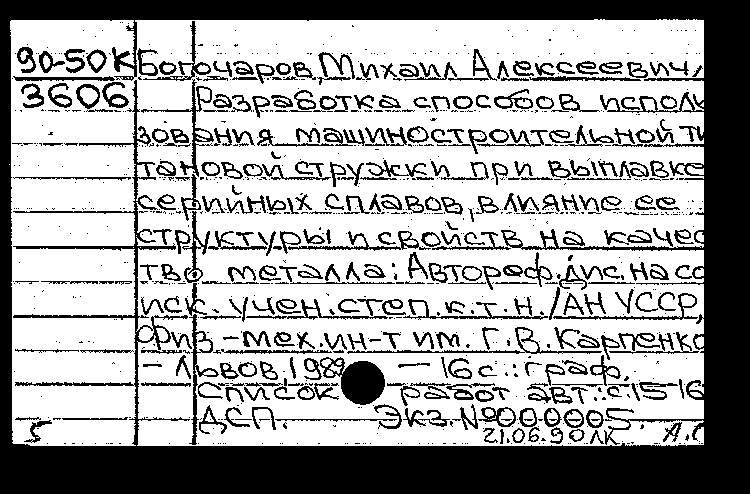 90-50К Богочаров, Михаил Алексеевич,
3606 Разработка способов исполь
зования машиностроительной ти
тановой стружки при выплавке
серийных сплавов, влияние ее
структуры и свойств на качес
тво металла: Автореф. дис. на со
иск. учен. степ. к. т. н. / АН УССР,
Физ-мех. ин-т им. Г. В. Карпенко
- Львов, 1989 — 16 с.: граф.
Список работ авт.: с. 15-16
ДСП. Экз. №000005.
5 21.06.90 ЛК. А.С